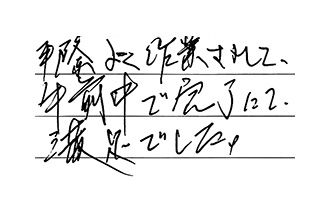 手際よく作業されて、
午前中で完了にて、
満足でした。